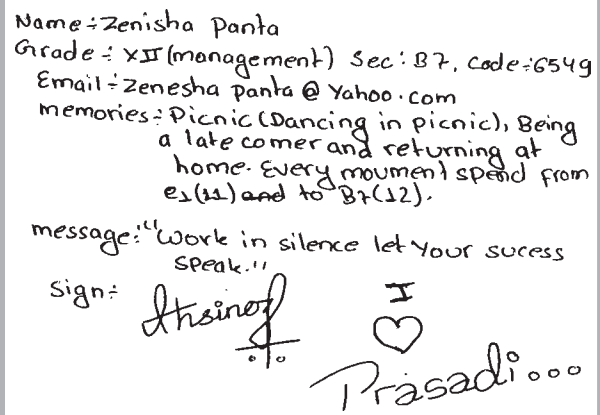 Name÷Zenisha Panta
Grade÷ XII (management) Sec: B7, Code÷6549
Email÷Zenesha panta@Yahoo.com
memories÷Picnic (Dancing in picnic), Being
a late comer and returning at
home. Every moument spend from
e1(11) and to B7(12).
message:"Work in silence let Your sucess
speak."
Sign÷
I
♡
Prasadi...